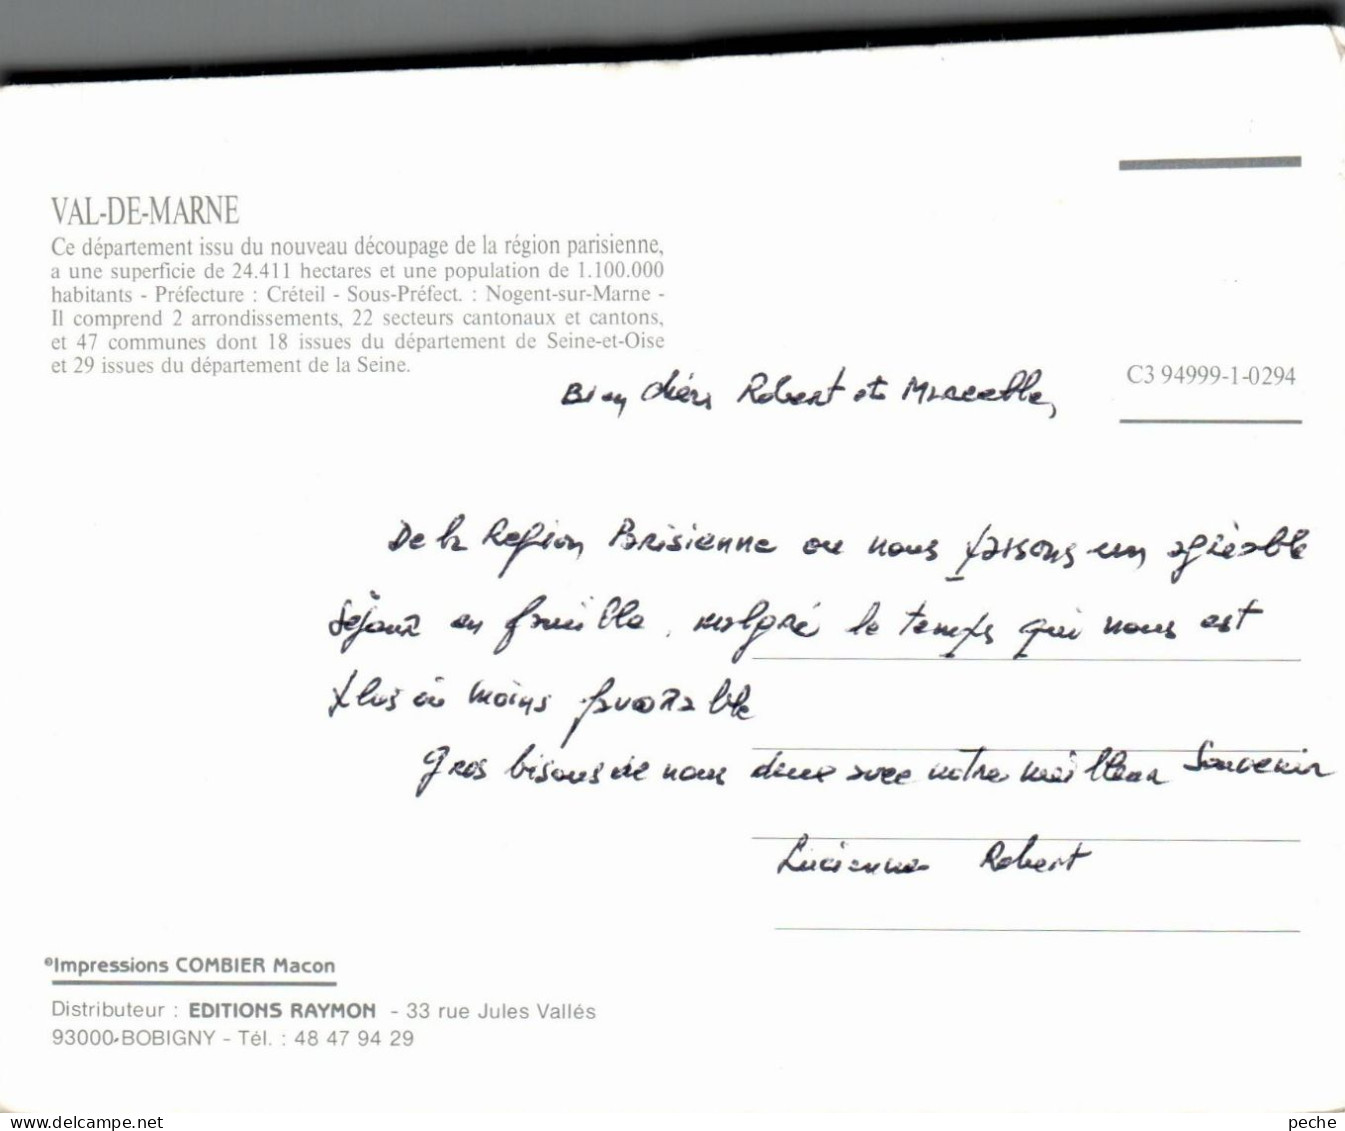 VAL-DE-MARNE
Ce département issu du nouveau découpage de la région parisienne,
a une superficie de 24.411 hectares et une population de 1.100.000
habitants - Préfecture : Créteil - Sous-Préfect. : Nogent-sur-Marne -
Il comprend 2 arrondissements, 22 secteurs cantonaux et cantons,
et 47 communes dont 18 issues du département de Seine-et-Oise
et 29 issues du département de la Seine.
C3 94999-1-0294
Bien chers Robert et Marcelle,
De la Region Parisienne ou nous passons un agréable
séjour en famille, malgré le temps qui nous est
plus ou moins favorable
Gros bisous de nous deux avec notre meilleur Souvenir
Lucienne Robert
©Impressions COMBIER Macon
Distributeur : EDITIONS RAYMON - 33 rue Jules Vallés
93000-BOBIGNY - Tél. : 48 47 94 29
peche